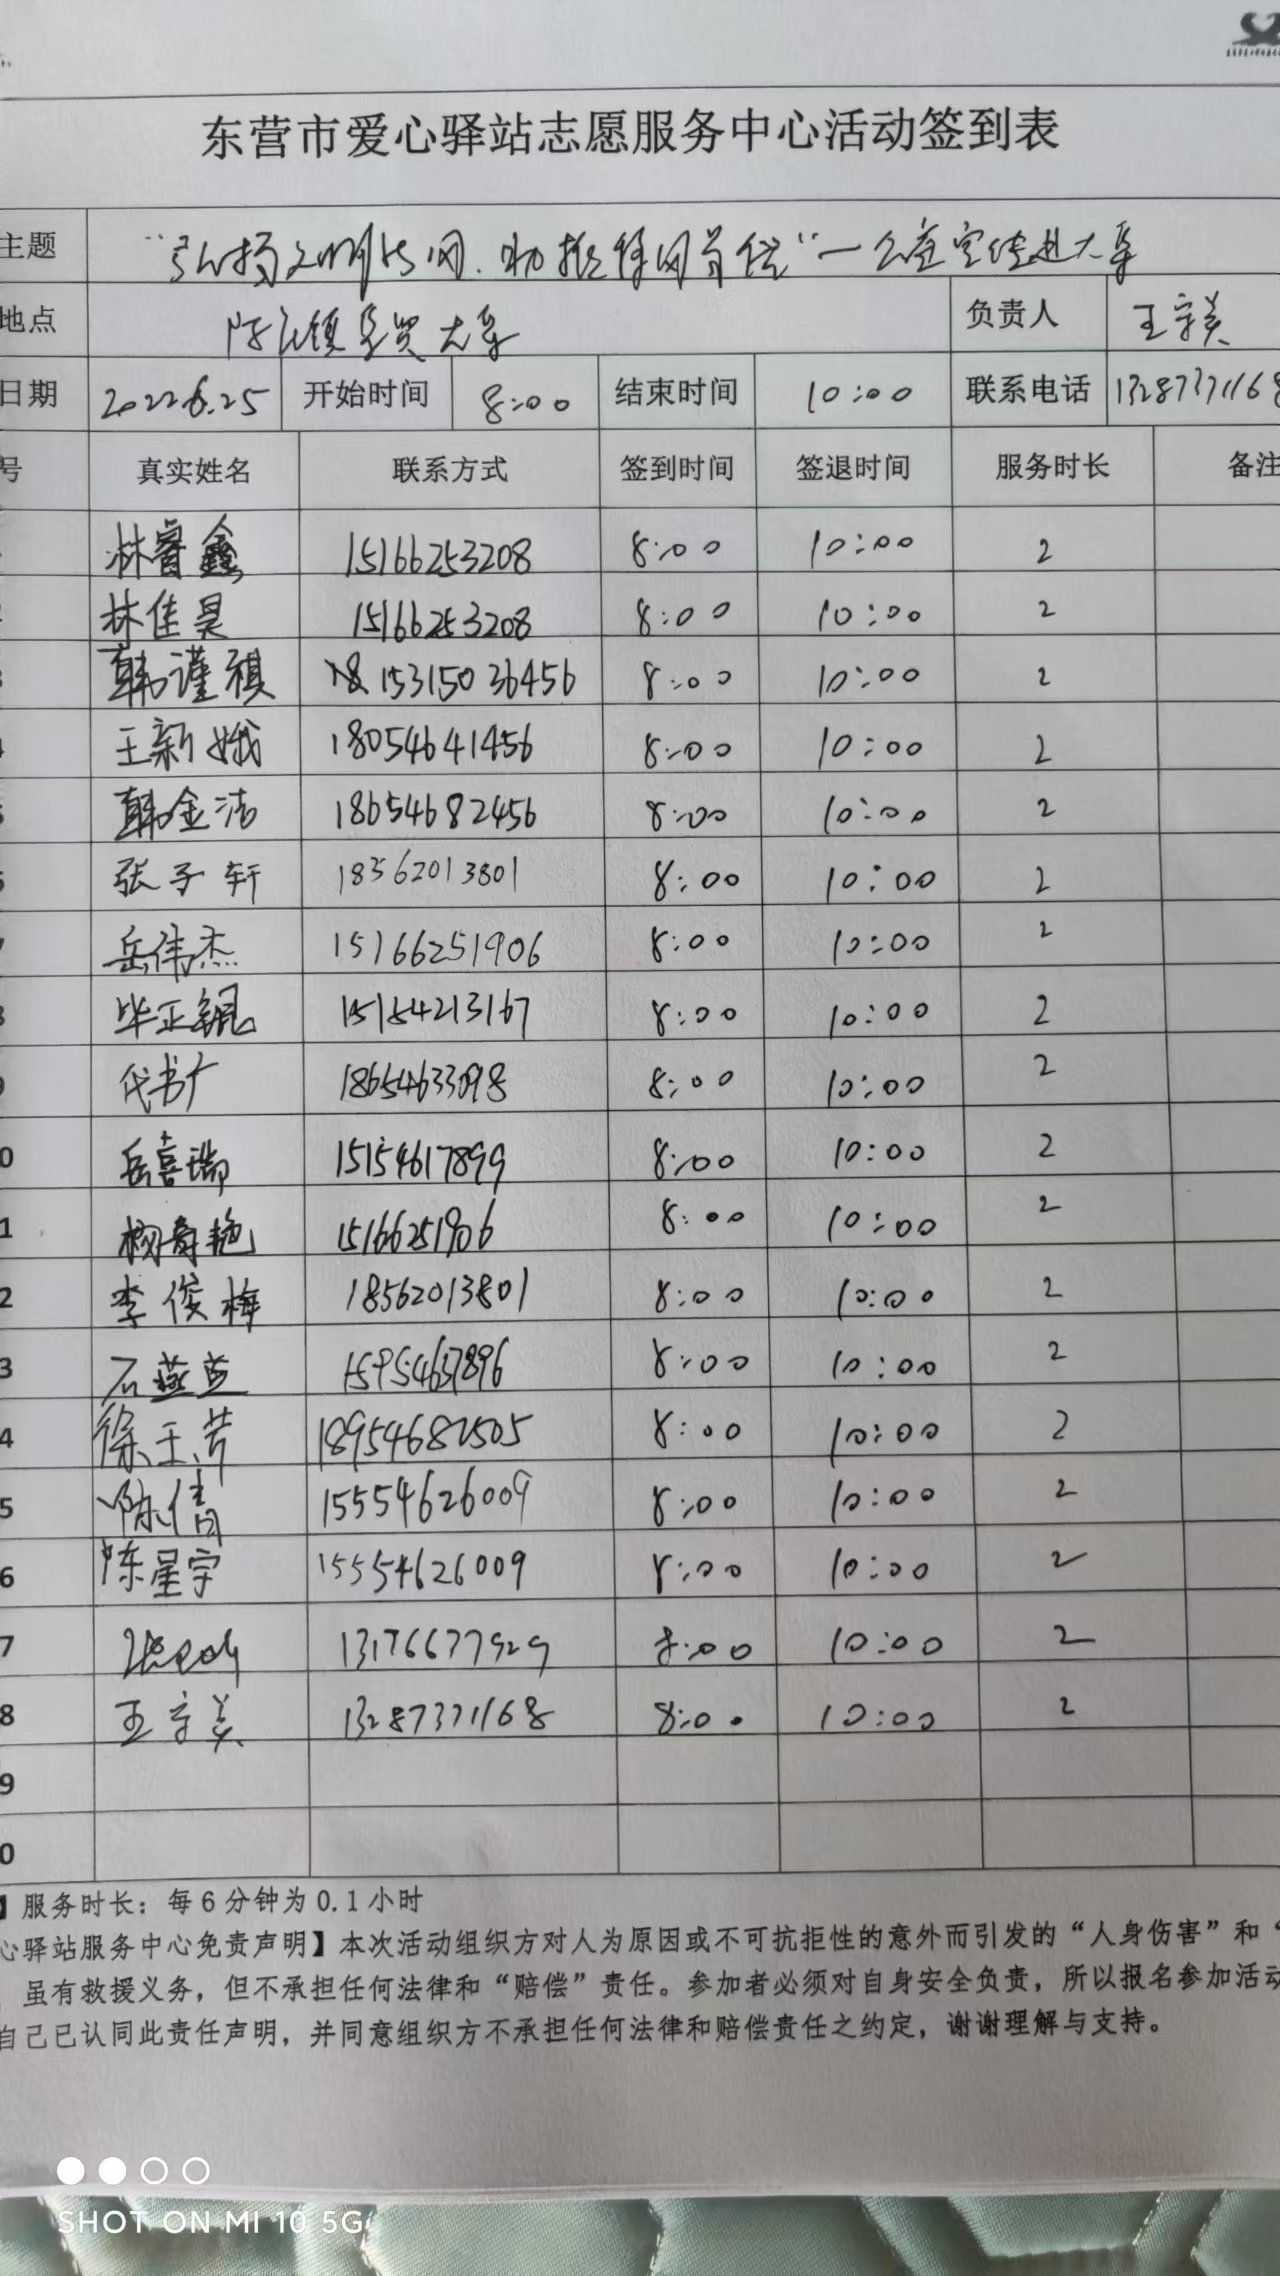 东营市爱心驿站志愿服务中心活动签到表
主题
地点 负责人 王守美
日期 2022.6.25 开始时间 8:00 结束时间 10:00 联系电话 13287371168
号 真实姓名 联系方式 签到时间 签退时间 服务时长 备注
林睿鑫 15166253208 8:00 10:00 2
林佳昊 15166253208 8:00 10:00 2
韩谨祺 15315036456 8:00 10:00 2
王新娥 18054641456 8:00 10:00 2
韩金洁 18654682456 8:00 10:00 2
张子轩 18562013801 8:00 10:00 2
岳伟杰 15166251906 8:00 10:00 2
毕正锟 15154213167 8:00 10:00 2
代书广 18654633098 8:00 10:00 2
0 岳喜瑞 15154617899 8:00 10:00 2
1 15166251906 8:00 10:00 2
2 李俊梅 18562013801 8:00 10:00 2
3 石燕 15954637896 8:00 10:00 2
4 徐玉芳 18954682505 8:00 10:00 2
5 陈倩 15554626009 8:00 10:00 2
6 陈星宇 15554626009 8:00 10:00 2
7 13176677929 8:00 10:00 2
8 王守美 13287371168 8:00 10:00 2
9
0
】服务时长：每6分钟为0.1小时
心驿站服务中心免责声明】本次活动组织方对人为原因或不可抗拒性的意外而引发的“人身伤害”和“
虽有救援义务，但不承担任何法律和“赔偿”责任。参加者必须对自身安全负责，所以报名参加活动
自己已认同此责任声明，并同意组织方不承担任何法律和赔偿责任之约定，谢谢理解与支持。
SHOT ON MI 10 5G